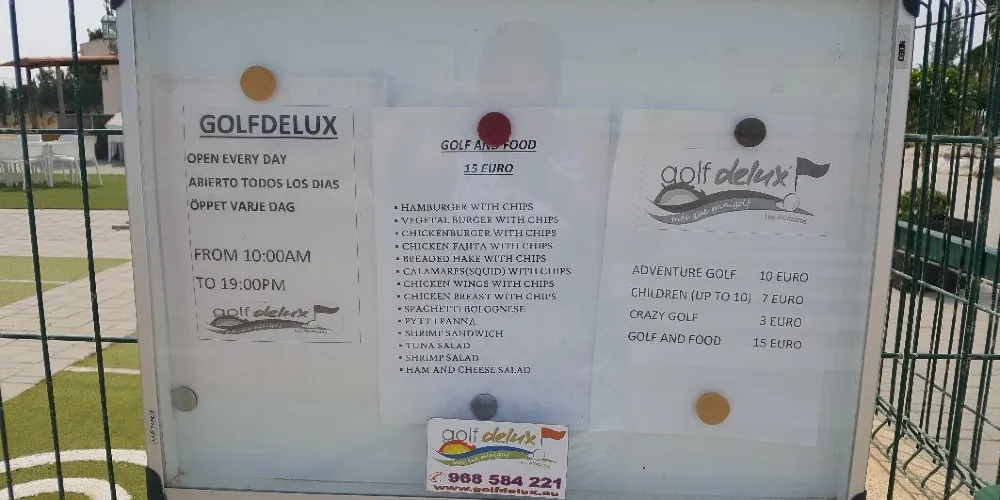 GOLFDELUX
OPEN EVERY DAY
ABIERTO TODOS LOS DIAS
ÖPPET VARJE DAG
FROM 10:00AM
TO 19:00PM
golf delux
GOLF AND FOOD
15 EURO
• HAMBURGER WITH CHIPS
• VEGETAL BURGER WITH CHIPS
• CHICKENBURGER WITH CHIPS
• CHICKEN FAJITA WITH CHIPS
• BREADED HAKE WITH CHIPS
• CALAMARES(SQUID) WITH CHIPS
• CHICKEN WINGS WITH CHIPS
• CHICKEN BREAST WITH CHIPS
• SPAGHETTI BOLOGNESE
• PYTT I PANNA
• SHRIMP SANDWICH
• TUNA SALAD
• SHRIMP SALAD
• HAM AND CHEESE SALAD
golf delux
más que minigolf
Los Alcázares
ADVENTURE GOLF 10 EURO
CHILDREN (UP TO 10) 7 EURO
CRAZY GOLF 3 EURO
GOLF AND FOOD 15 EURO
golf delux
más que minigolf
968 584 221
www.golfdelux.eu